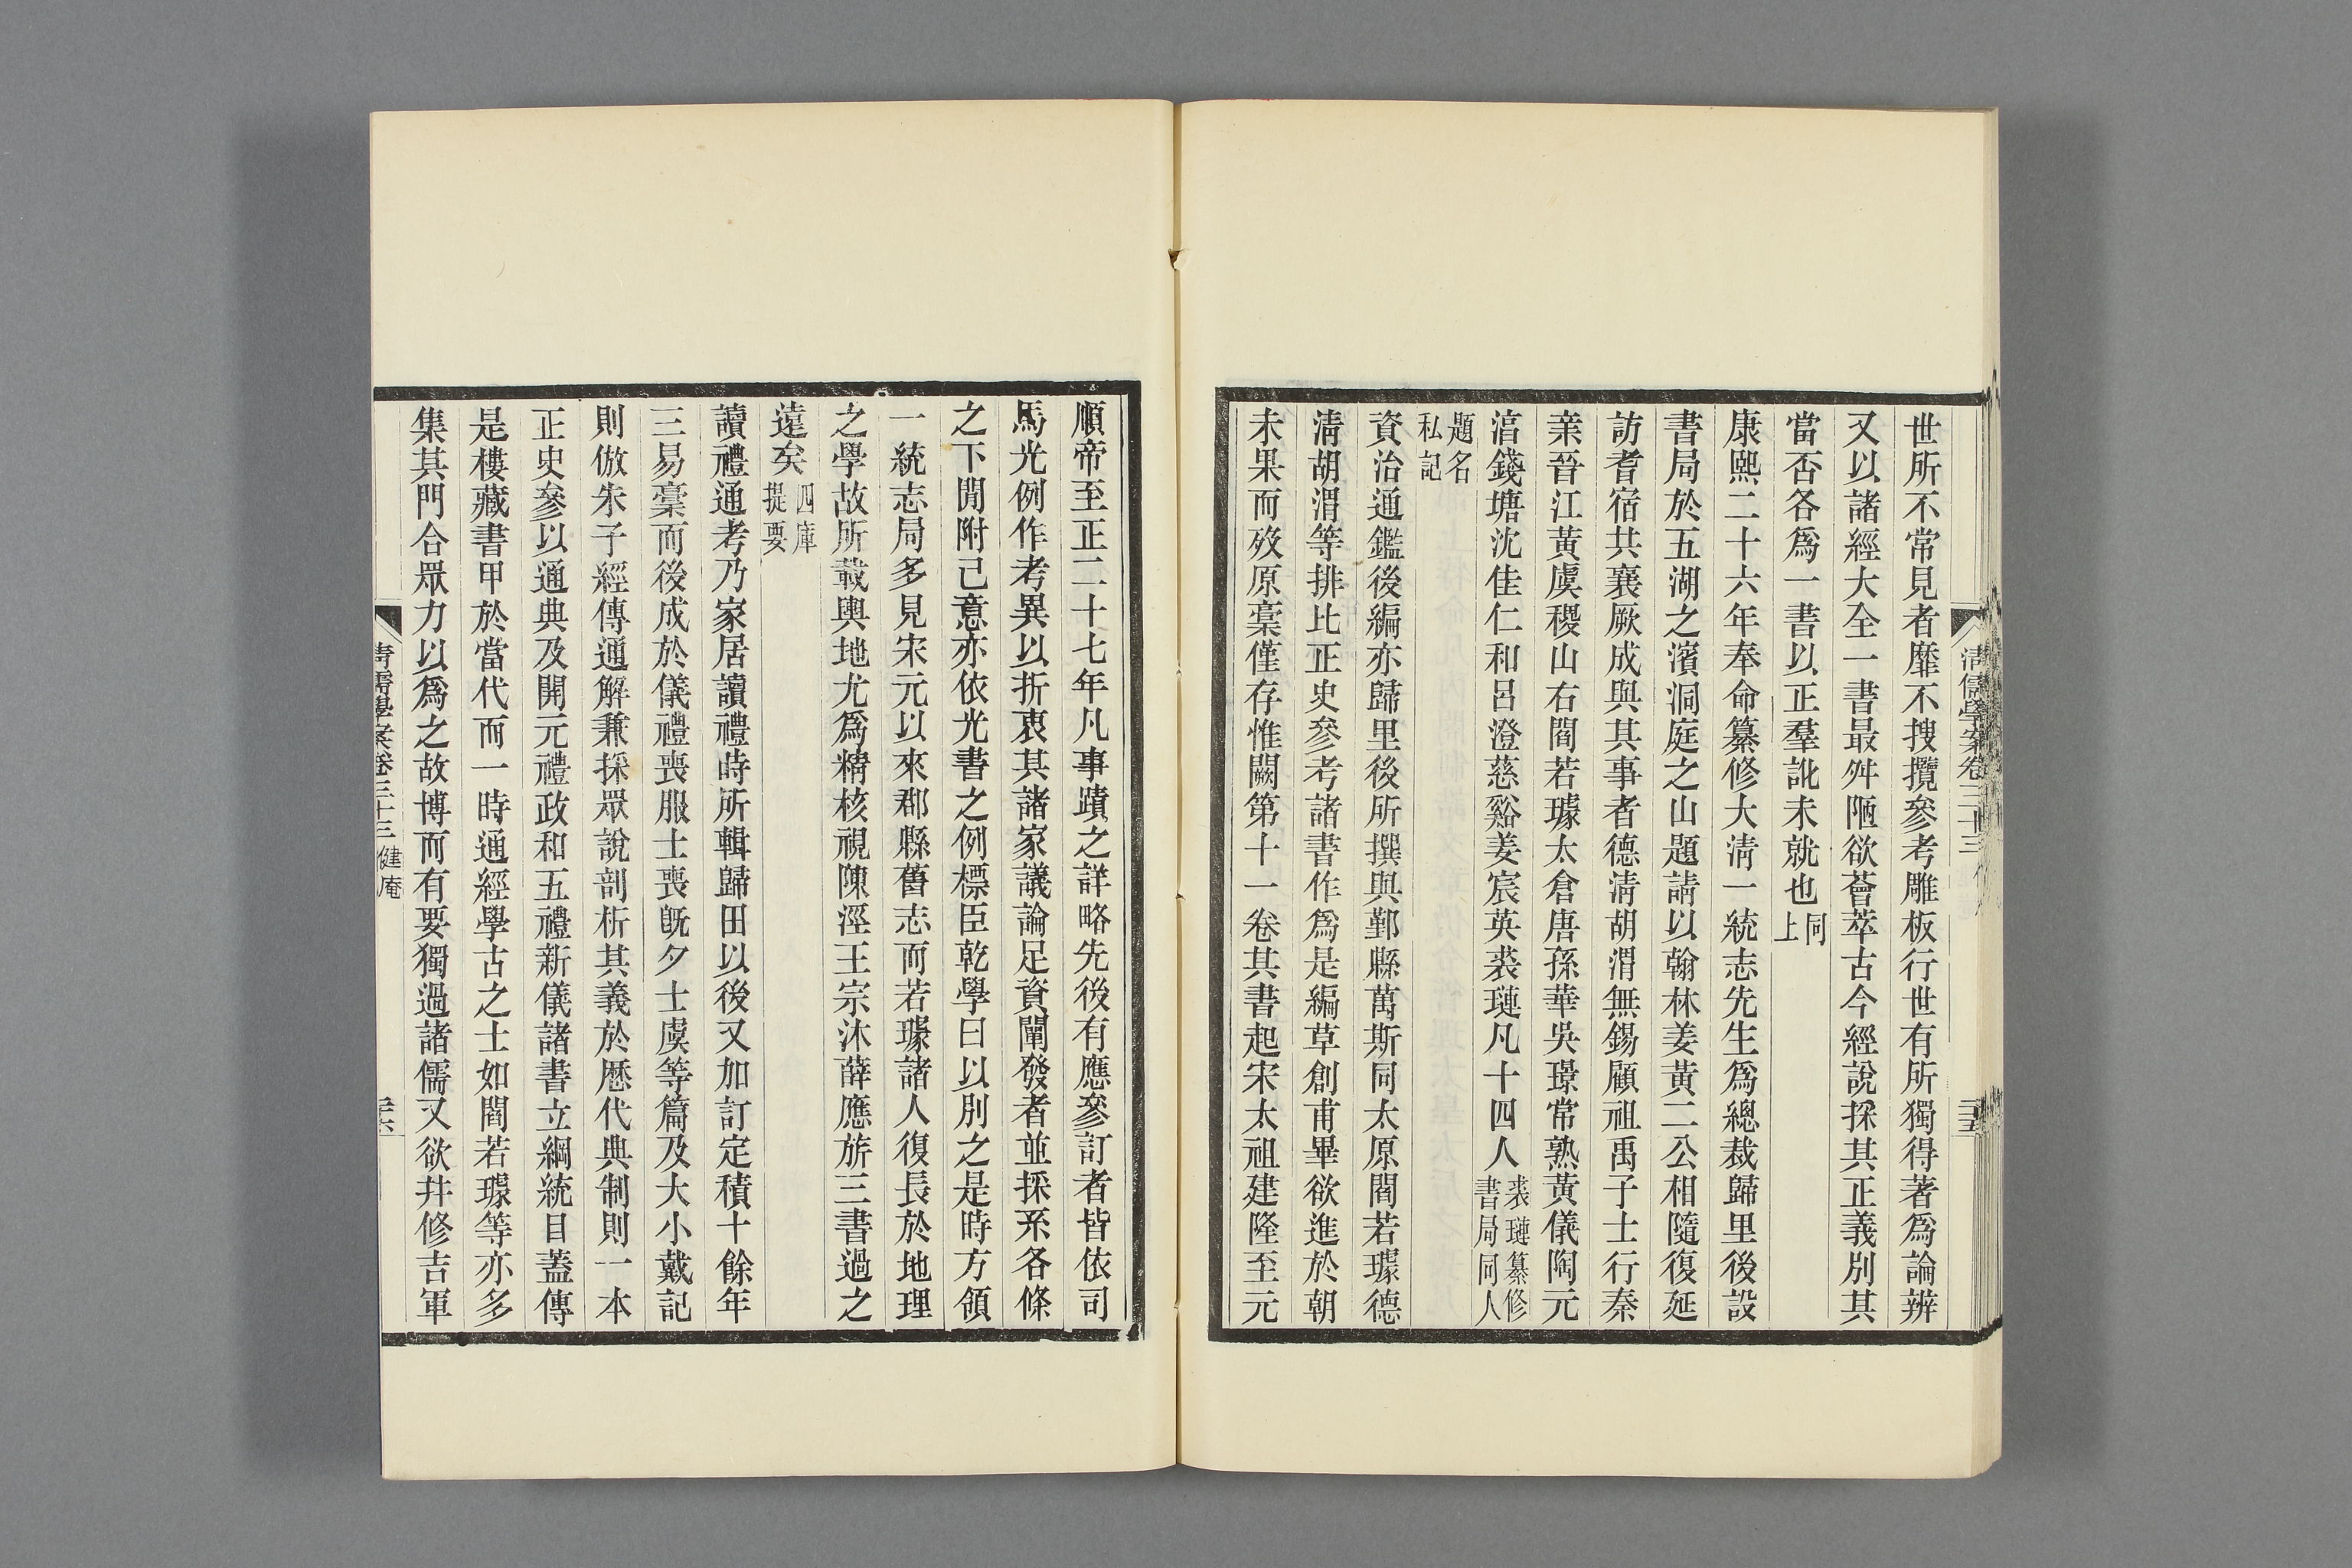 世所不常見者靡不搜攬參考雕板行世有所獨得著爲論辨
又以諸經大全一書最舛陋欲薈萃古今經說採其正義別其
當否各爲一書以正羣訛未就也同上
康熙二十六年奉命纂修大清一統志先生爲總裁歸里後設
書局於五湖之濱洞庭之山題請以翰林姜黃二公相隨復延
訪耆宿共襄厥成與其事者德清胡渭無錫顧祖禹子士行秦
亲晉江黃虞稷山右閻若璩太倉唐孫華吳璟常熟黃儀陶元
淳錢塘沈佳仁和呂澄慈谿姜宸英裘璉凡十四人裘璉纂修書局同人
題名私記
資治通鑑後編亦歸里後所撰與鄞縣萬斯同太原閻若璩德
清胡渭等排比正史參考諸書作爲是編草創甫畢欲進於朝
未果而歿原稾僅存惟闕第十一卷其書起宋太祖建隆至元
順帝至正二十七年凡事蹟之詳略先後有應參訂者皆依司
馬光例作考異以折衷其諸家議論足資闡發者並採系各條
之下閒附己意亦依光書之例標臣乾學曰以別之是時方領
一統志局多見宋元以來郡縣舊志而若璩諸人復長於地理
之學故所載輿地尤爲精核視陳涇王宗沐薛應旂三書過之
遠矣四庫提要
讀禮通考乃家居讀禮時所輯歸田以後又加訂定積十餘年
三易稾而後成於儀禮喪服士喪旣夕士虞等篇及大小戴記
則倣朱子經傳通解兼採眾說剖析其義於歷代典制則一本
正史參以通典及開元禮政和五禮新儀諸書立綱統目蓋傳
是樓藏書甲於當代而一時通經學古之士如閻若璩等亦多
集其門合眾力以爲之故博而有要獨過諸儒又欲幷修吉軍
清儒學案卷三十三 健庵
三六